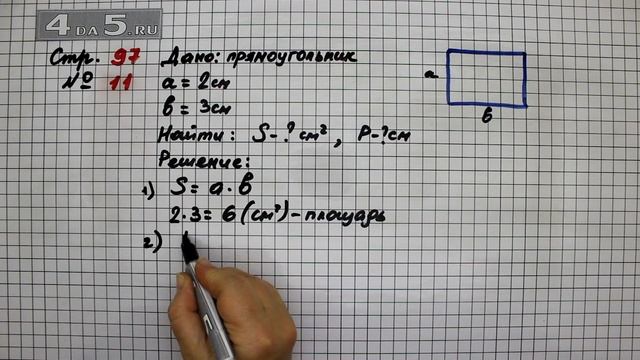 4 DA 5.RU
Стр. 97 Дано: прямоугольник
№ 11 а = 2см
в = 3см
Найти: S-? см², Р-?см
Решение:
1) S = а · в
2 · 3 = 6 (см²) - площадь
2)
а
в